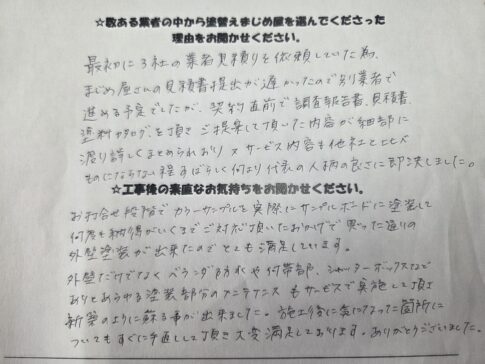 ☆数ある業者の中から塗替えまじめ屋を選んでくださった
理由をお聞かせください。
最初に3社の業者見積りを依頼していた為、
まじめ屋さんの見積書提出が遅かったので別業者で
進める予定でしたが、契約直前で調査報告書、見積書、
塗料カタログを頂きご提案して頂いた内容が細部に
渡り詳しくまとめられおり又サービス内容も他社と比べ
ものにならない程すばらしく何より代表の人柄の良さに即決しました。
☆工事後の素直なお気持ちをお聞かせください。
お打合せ段階でカラーサンプルを実際にサンプルボードに塗装して
何度も納得がいくまでご対応頂いたおかげで思った通りの
外壁塗装が出来たのでとても満足しています。
外壁だけでなくベランダ防水や付帯部、シャッターボックスなど
ありとあらゆる塗装部分のメンテナンスもサービスで実施して頂き
新築のように蘇る事が出来ました。施工後に気になった箇所に
ついてもすぐに手直しして頂き大変満足しております。ありがとうございました。